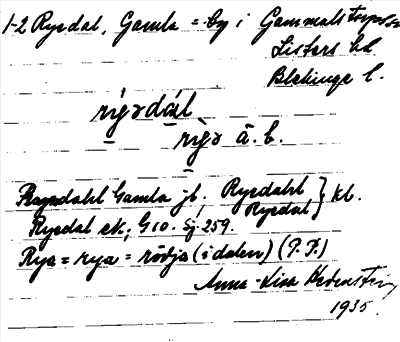 1-2 Rysdal, Gamla = by i Gammalstorps sn
Listers hd.
Blekinge l.
rẏsdál
rẏs ä. b.
Rysdahl Gamla jb. Rysdahl } kb.
Rysdal
Rysdal ek; G10. Sj. 259.
Rya = rya = rödja (i dalen) (P.P.)
Anna-Lisa Hedenstierna
1935.